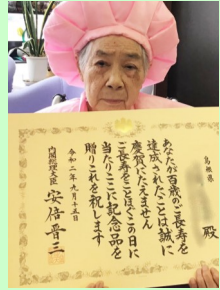 島根県
殿
あなたが百歳のご長寿を
達成されたことは誠に
慶賀にたえません
ご長寿をことほぐこの日に
当たりここに記念品を
贈りこれを祝します
令和二年九月十五日
内閣総理大臣 安倍晋三